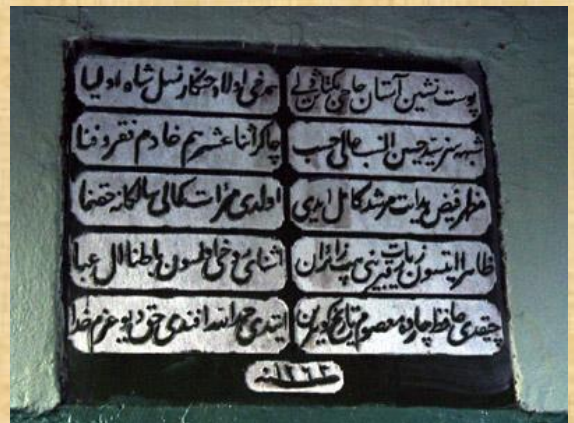 پوست نشین آستان حاجی بکتاش ولی
اولاد خنکار نسل شاه اولیا
شبهه سز سید حسین النسب عالی حسب
چاکر اثنا عشر هم خادم فقر و فنا
مظهر فیض هدایت مرشد کامل ایدی
اولدی مرآت کمالی سالکانه حقنما
ظاهرا ایتسون زیارت قبرینی هپ زائران
روحی باطنا ال عبا
چیقدی حافظ چارده معصوم تاریخ
ایتدی حمدالله افندی حق دیو عزم خدا
سنه